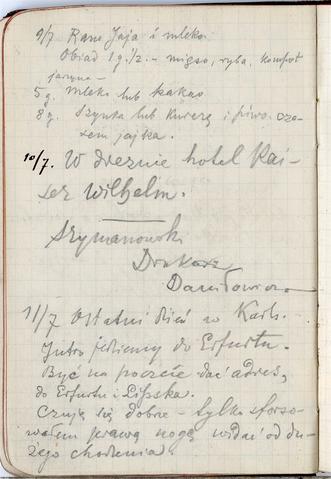 9/7 Rano Jaja i mleko
Obiad 1 g. ½ – mięso, ryba, kompot
jarzyna –
5 g. mleko lub kakao
8 g. szynka lub kurczę i piwo. cza-
sem jajka.
10/7. W dreznie hotel Kai-
ser Wilhelm.
Szymanowski
Drukarz
Daniłowicz
11/7 Ostatni dzień w Karls.
Jutro jedziemy do Erfurtu.
Być na poczcie dać adres,
do Erfurtu i Lipska.
Czuję się dobrze – tylko sforso-
wałem prawą nogę widać od du-
żego chodzenia